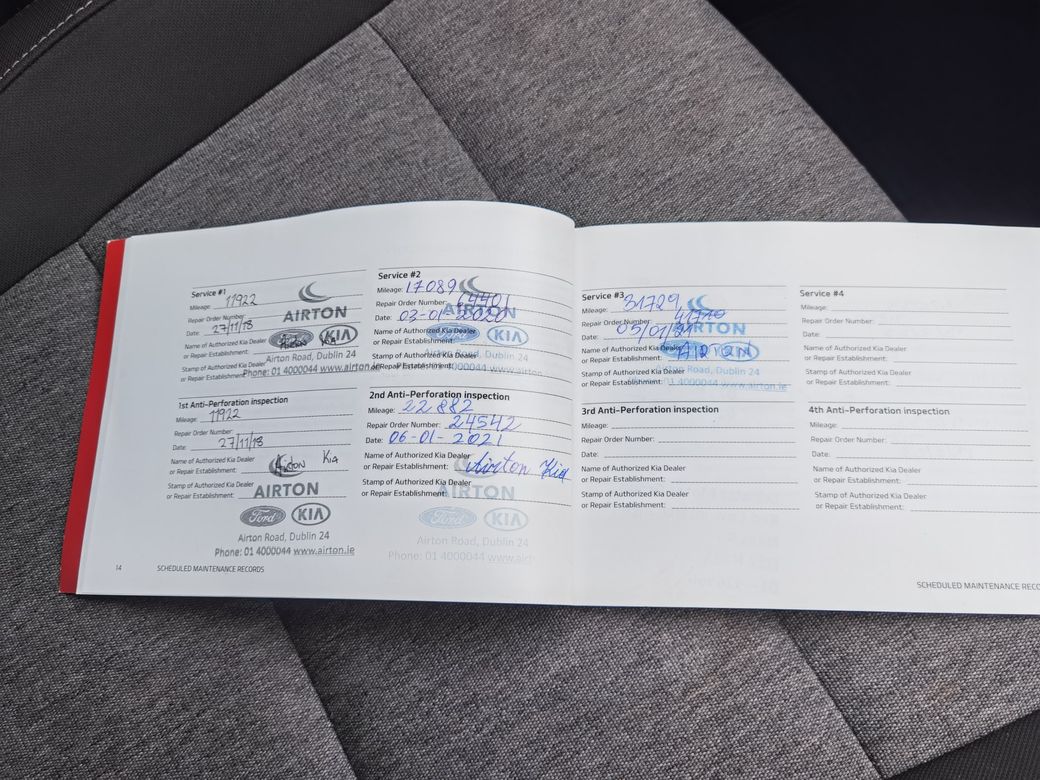 Service #1
Mileage: 11922
Repair Order Number:
Date: 27/11/18
Name of Authorized Kia Dealer
or Repair Establishment: Airton Kia
Stamp of Authorized Kia Dealer
or Repair Establishment:
AIRTON
Ford KIA
Airton Road, Dublin 24
Phone: 01 4000044 www.airton.ie
1st Anti-Perforation inspection
Mileage: 11922
Repair Order Number:
Date: 27/11/18
Name of Authorized Kia Dealer
or Repair Establishment: Airton Kia
Stamp of Authorized Kia Dealer
or Repair Establishment:
AIRTON
Ford KIA
Airton Road, Dublin 24
Phone: 01 4000044 www.airton.ie
14 SCHEDULED MAINTENANCE RECORDS
Service #2
Mileage: 17089
Repair Order Number:
Date: 03-01-2020
Name of Authorized Kia Dealer
or Repair Establishment:
Stamp of Authorized Kia Dealer
or Repair Establishment:
AIRTON
Ford KIA
Airton Road, Dublin 24
2nd Anti-Perforation inspection
Mileage: 22 882
Repair Order Number: 24542
Date: 06-01-2021
Name of Authorized Kia Dealer
or Repair Establishment: Airton Kia
Stamp of Authorized Kia Dealer
or Repair Establishment:
AIRTON
Ford KIA
Airton Road, Dublin 24
Phone: 01 4000044 www.airt
Service #3
Mileage: 31729
Repair Order Number:
Date: 05/01/21
Name of Authorized Kia Dealer
or Repair Establishment: AIRTON
Stamp of Authorized Kia Dealer
or Repair Establishment:
AIRTON
Road, Dublin 24
01 4000044 www.airton.ie
3rd Anti-Perforation inspection
Mileage:
Repair Order Number:
Date:
Name of Authorized Kia Dealer
or Repair Establishment:
Stamp of Authorized Kia Dealer
or Repair Establishment:
Service #4
Mileage:
Repair Order Number:
Date:
Name of Authorized Kia Dealer
or Repair Establishment:
Stamp of Authorized Kia Dealer
or Repair Establishment:
4th Anti-Perforation inspection
Mileage:
Repair Order Number:
Date:
Name of Authorized Kia Dealer
or Repair Establishment:
Stamp of Authorized Kia Dealer
or Repair Establishment:
SCHEDULED MAINTENANCE RECO